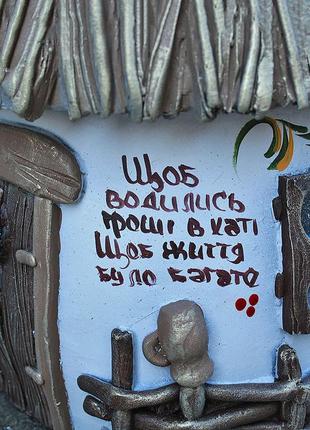 Щоб
водились
гроші в хаті
Щоб життя
було багате